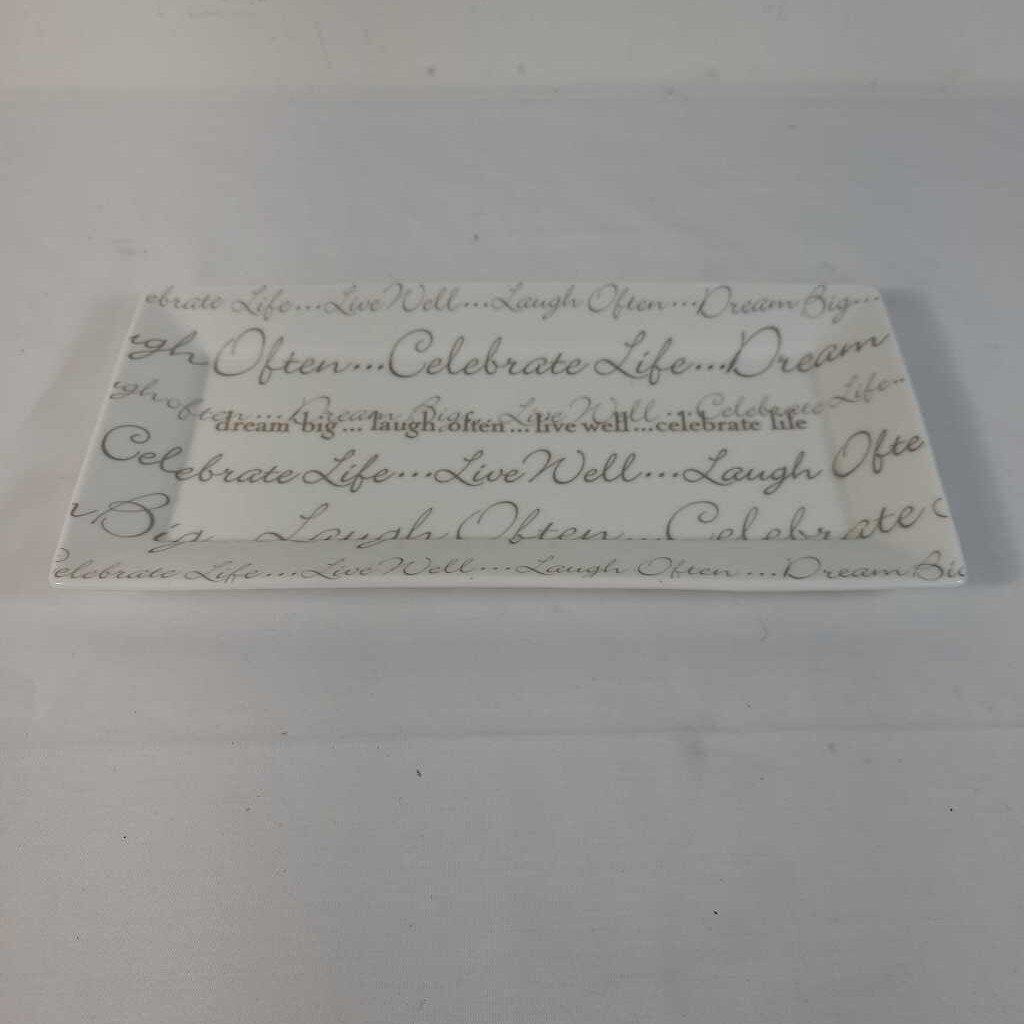 ebrate Life...Live Well...Laugh Often...Dream Big...
ugh Often...Celebrate Life...Dream
ugh often...Dream Big...Live Well...Celebrate Life...
dream big... laugh often... live well...celebrate life
Celebrate Life...Live Well...Laugh Ofte
Big Laugh Often...Celebrate
Celebrate Life...Live Well...Laugh Often...Dream Big